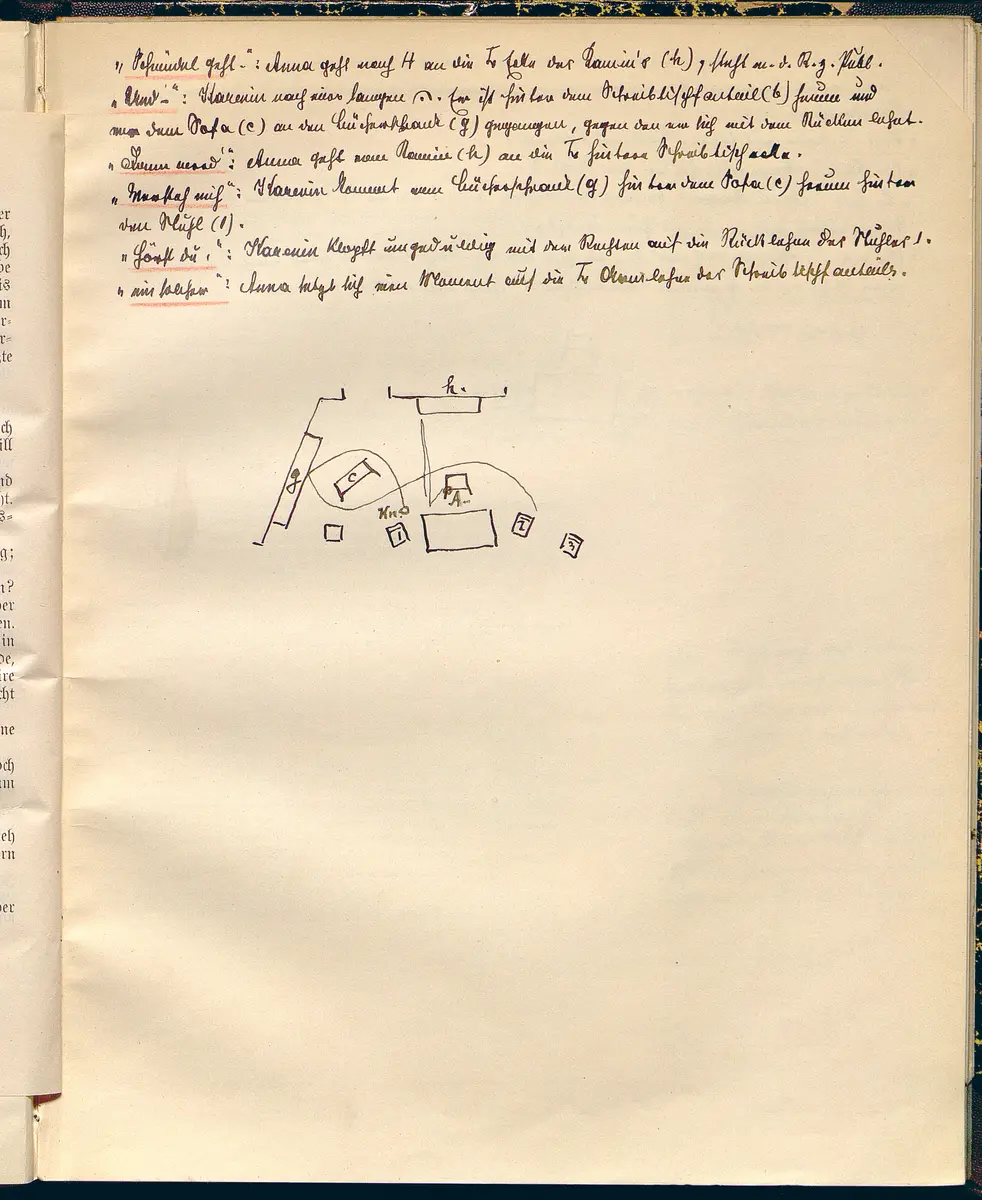 er
h,
ch
be
is
m
r=
r=
te
ch
ill
nd
ht.
s=
g;
n?
ber
en.
in
de,
ire
cht
ne
och
um
eh
ern
ber
„Schwindel geht -": Anna geht nach H an die Tr Ecke des Kamin's (h), steht m. d. R. z. Publ.
„Und -": Karenin nach einer langen 𝄐. Er ist hinter dem Schreibtischfauteil (b) herum und
vor dem Sofa (c) an den Bücherschrank (g) gegangen, gegen den er sich mit dem Rücken lehnt.
„Dann werd'": Anna geht vom Kamin (h) an die Tr hintere Schreibtischecke.
„Versteh mich": Karenin kommt vom Bücherschrank (g) hinter dem Sofa (c) herum hinter
den Stuhl (1).
„Hörst du,": Karenin klopft ungeduldig mit der Rechten auf die Rücklehne des Stuhles 1.
„ein solcher": Anna setzt sich einen Moment auf die Tr Armlehne des Schreibtischfauteils.
h.
g
c
A.
Kn.
1
2
3